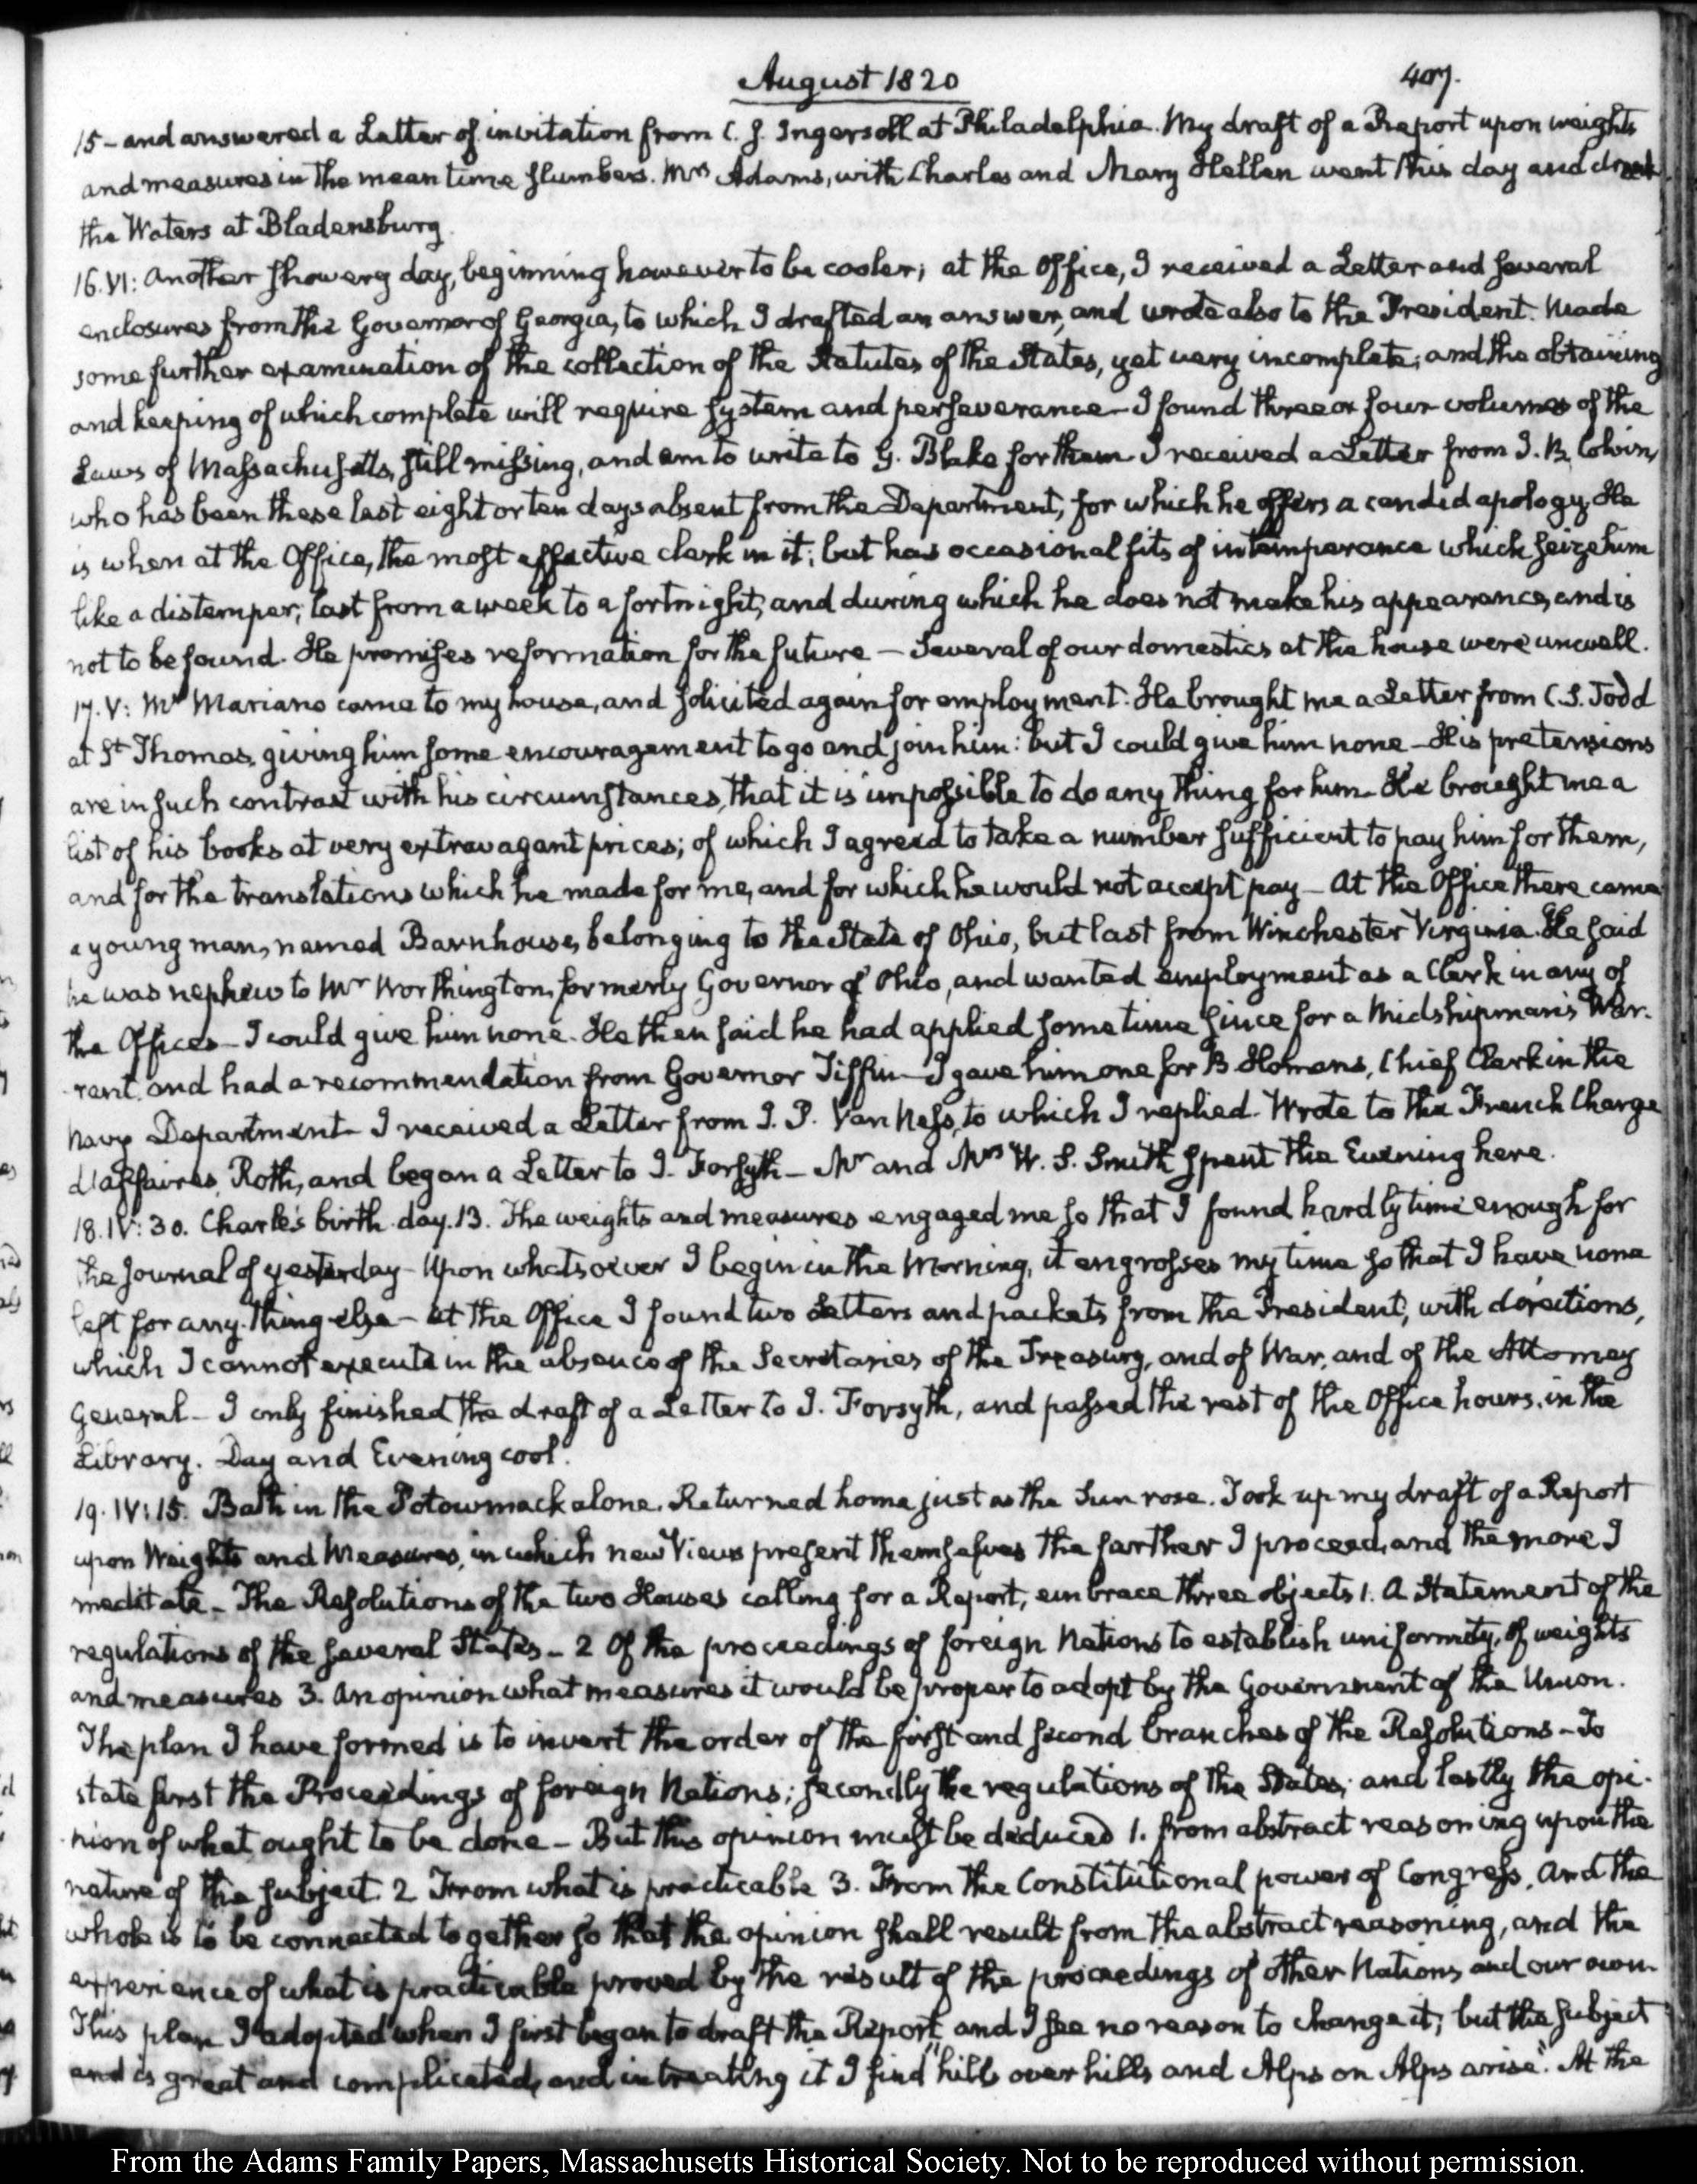 August 1820
407.
15 - and answered a Letter of invitation from C. J. Ingersoll at Philadelphia. My draft of a Report upon weights
and measures in the mean time slumbers. Mrs Adams, with Charles and Mary Hellen went this day and drank
the Waters at Bladensburg.
16. VI: Another showery day, beginning however to be cooler; at the Office, I received a Letter and several
enclosures from the Governor of Georgia, to which I drafted an answer, and wrote also to the President. Made
some further examination of the collection of the Statutes of the States, yet very incomplete; and the obtaining
and keeping of which complete will require system and perseverance - I found three or four volumes of the
Laws of Massachusetts, still missing, and am to write to G. Blake for them - I received a Letter from J. B. Colvin,
who has been these last eight or ten days absent from the Department, for which he offers a candid apology. He
is when at the Office, the most effective clerk in it; but has occasional fits of intemperance which seize him
like a distemper; last from a week to a fortnight, and during which he does not make his appearance, and is
not to be found. He promises reformation for the future - Several of our domestics at the house were unwell.
17. V: Mr Mariano came to my house, and solicited again for employment. He brought me a Letter from C. S. Todd
at St Thomas, giving him some encouragement to go and join him: but I could give him none - His pretensions
are in such contrast with his circumstances, that it is impossible to do any thing for him - He brought me a
list of his books at very extravagant prices; of which I agreed to take a number sufficient to pay him for them,
and for the translations which he made for me, and for which he would not accept pay - At the Office there came
a young man, named Barnhouse, belonging to the State of Ohio, but last from Winchester Virginia. He said
he was nephew to Mr Worthington, formerly Governor of Ohio, and wanted employment as a Clerk in any of
the Offices - I could give him none. He then said he had applied some time since for a Midshipman's War-
-rant, and had a recommendation from Governor Tiffin - I gave him one for B Homans, Chief Clerk in the
Navy Department - I received a Letter from J. P. Van Ness, to which I replied. Wrote to the French Charge
d'affaires, Roth, and began a Letter to J. Forsyth - Mr and Mrs W. S. Smith spent the Evening here.
18. IV: 30. Charles's birth-day. 13. The weights and measures engaged me so that I found hardly time enough for
the Journal of yesterday - Upon whatsoever I begin in the Morning, it engrosses my time so that I have none
left for any thing else - At the Office I found two Letters and packets from the President, with directions,
which I cannot execute in the absence of the Secretaries of the Treasury, and of War, and of the Attorney
General - I only finished the draft of a Letter to J. Forsyth, and passed the rest of the Office hours, in the
Library. Day and Evening cool.
19. IV: 15. Bath in the Potowmack alone. Returned home just as the Sun rose. Took up my draft of a Report
upon Weights and Measures, in which new Views present themselves the farther I proceed, and the more I
meditate - The Resolutions of the two Houses calling for a Report, embrace three objects 1. A Statement of the
regulations of the several States - 2 Of the proceedings of foreign Nations to establish uniformity, of weights
and measures 3. An opinion what measures it would be proper to adopt by the Government of the Union.
The plan I have formed is to invert the order of the first and second branches of the Resolutions - To
state first the Proceedings of foreign Nations; secondly the regulations of the States; and lastly the opi-
-nion of what ought to be done - But this opinion must be deduced 1. from abstract reasoning upon the
nature of the subject. 2 From what is practicable 3. From the Constitutional power of Congress. And the
whole is to be connected together so that the opinion shall result from the abstract reasoning, and the
experience of what is practicable proved by the result of the proceedings of other Nations and our own.
This plan I adopted when I first began to draft the Report, and I see no reason to change it; but the subject
and is great and complicated, and in treating it I find "hills over hills and Alps on Alps arise". At the
From the Adams Family Papers, Massachusetts Historical Society. Not to be reproduced without permission.